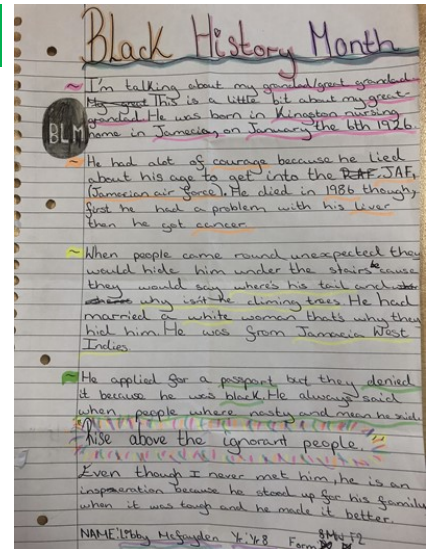 Black History Month
I'm talking about my grandad/great grandad
My great This is a little bit about my great-
grandad. He was born in Kingston nursing
home in Jamecia, on January the 6th 1926.
BLM
He had alot of courage because he lied
about his age to get into the RAF JAF,
(Jamecian air force). He died in 1986 though,
first he had a problem with his liver
then he got cancer.
When people came round unexpected they
would hide him under the stairs be cause
they would say where's his tail and
why isit he climing trees He had
married a white woman thats why they
hid him. He was from Jamacia West
Indies.
He applied for a passport but they denied
it because he was black. He always said
when people where nasty and mean he said.
Rise above the ignorant people.
Even though I never met him, he is an
insperation because he stood up for his family
when it was tough and he made it better.
NAME: Libby McFayden Yr: Yr8 Form